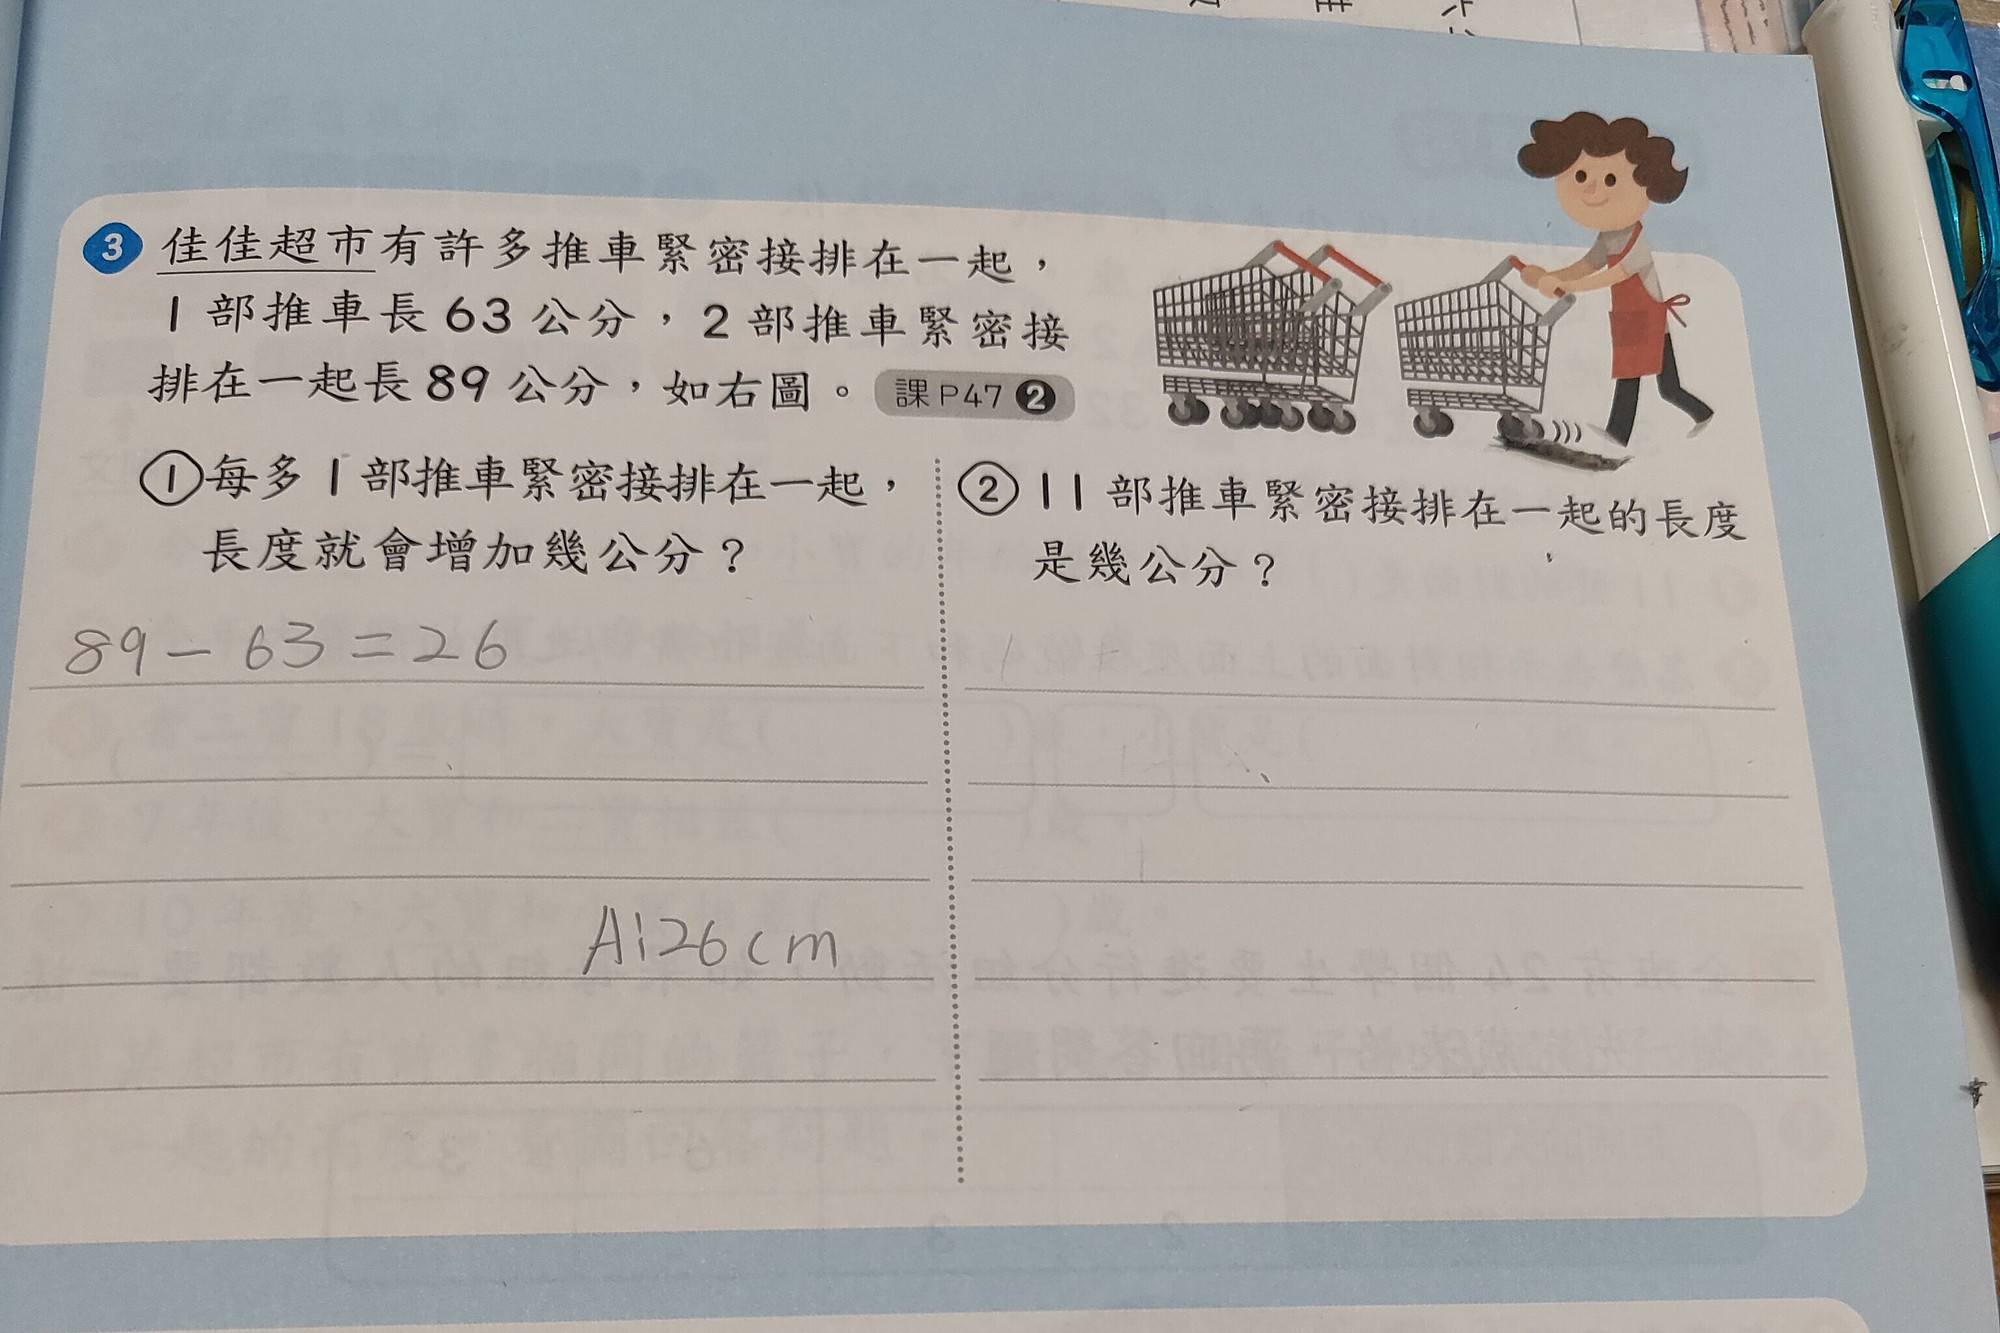 3 佳佳超市有許多推車緊密接排在一起，
1 部推車長 63 公分，2 部推車緊密接
排在一起長 89 公分，如右圖。 課P47 2
① 每多 1 部推車緊密接排在一起，
長度就會增加幾公分？
89－63＝26
A:26cm
② 11 部推車緊密接排在一起的長度
是幾公分？